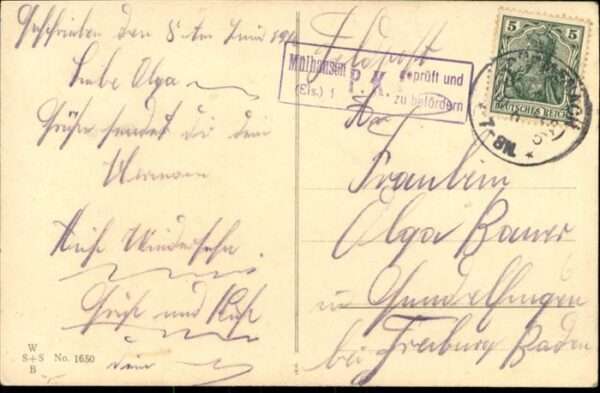 Geschrieben den 8 ten Juni 191
Liebe Olga
Grüße sendet dir dein
Hermann
Auf Wiedersehn
Gruß und Kuß
dein
W
S+S No. 1650
B
Feldpost
Mülhausen
(Els.) 1
P. K.
geprüft und
zu befördern
5 5
DEUTSCHES REICH
An
Fraulein
Olga Bauer
in Gundelfingen
bei Freiburg Baden